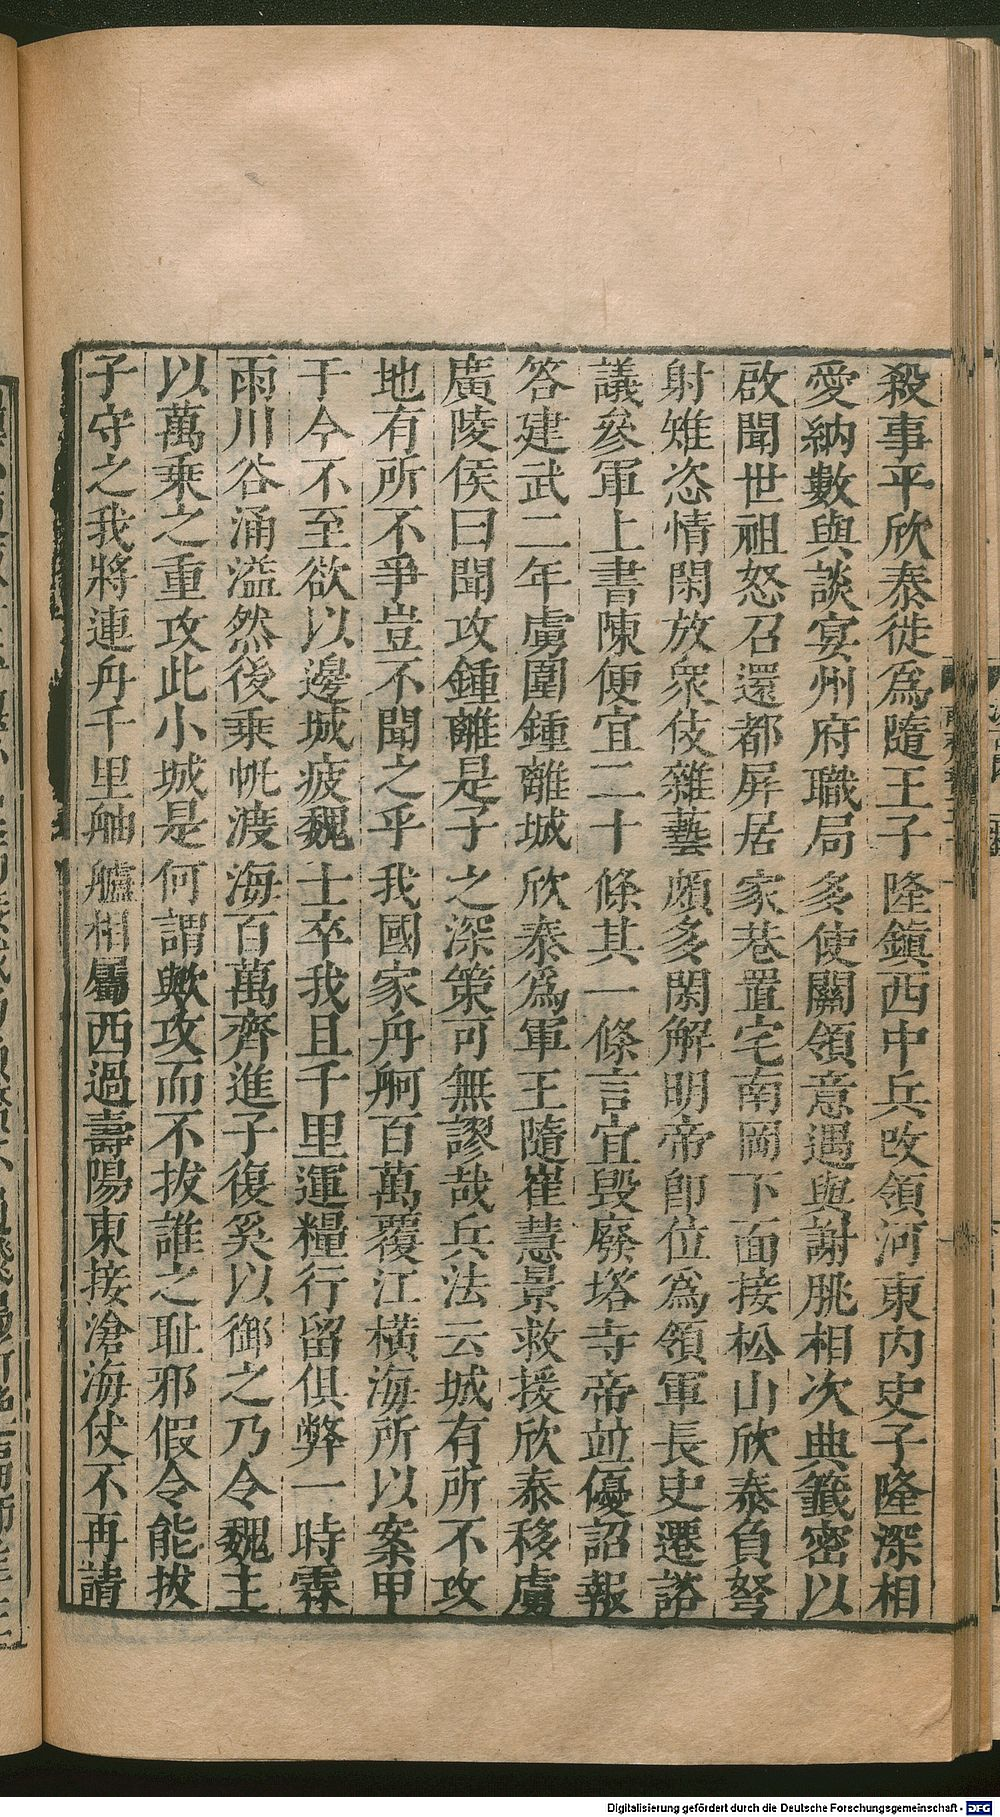 殺事平欣泰徙爲隨王子隆鎮西中兵改領河東内史子隆深相
愛納數與談宴州府職局多使關領意遇與謝朓相次典籤密以
啟聞世祖怒召還都屏居家巷置宅南岡下面接松山欣泰負弩
射雉恣情閑放衆伎雜藝頗多閑解明帝即位爲領軍長史遷諮
議參軍上書陳便宜二十條其一條言宜毀廢塔寺帝並優詔報
答建武二年虜圍鍾離城欣泰爲軍王隨崔慧景救援欣泰移虜
廣陵侯曰聞攻鍾離是子之深策可無謬哉兵法云城有所不攻
地有所不爭豈不聞之乎我國家舟舸百萬覆江橫海所以案甲
于今不至欲以邊城疲魏士卒我且千里運糧行留俱弊一時霖
雨川谷涌溢然後乘帆渡海百萬齊進子復奚以御之乃令魏主
以萬乘之重攻此小城是何謂歟攻而不拔誰之耻邪假令能拔
子守之我將連舟千里舳艫相屬西過壽陽東接滄海仗不再請
Digitalisierung gefördert durch die Deutsche Forschungsgemeinschaft - DFG